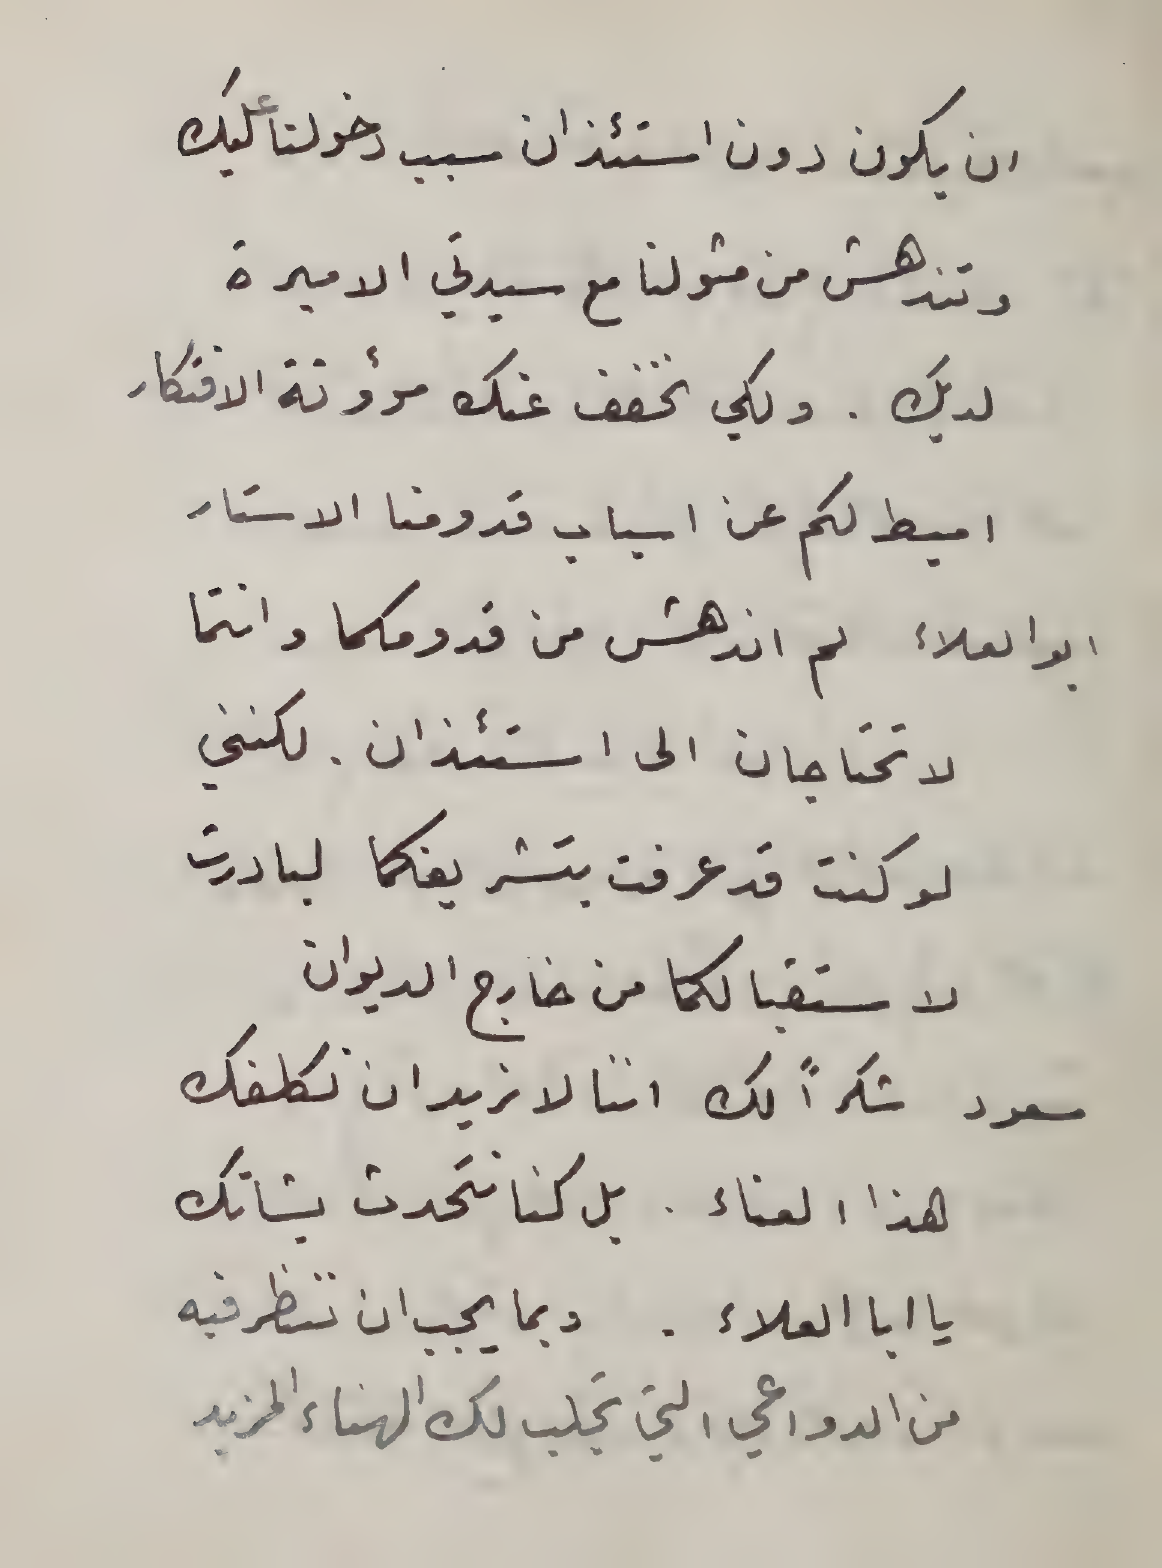 ان يكون دون استئذان سبب دخولنا عليك
وتندهش من مثولنا مع سيدتي الاميرة
لديك . ولكي نخفف عنك مؤونة الافتكار
اميط لكم عن اسباب قدومنا الاستار
ابو العلاء لم اندهش من قدومكما وانتما
لا تحتاجان الى استئذان . لكنني
لو كنت قد عرفت بتشريفكما لبادرت
لاستقبالكما من خارج الديوان
سعود شكراً لك اننا لا نريد ان نكلفك
هذا العناء . بل كنا نتحدث بشانك
يا ابا العلاء . وبما يجب ان تنظر فيه
من الدواعي التي تجلب لك الهناء المزيد